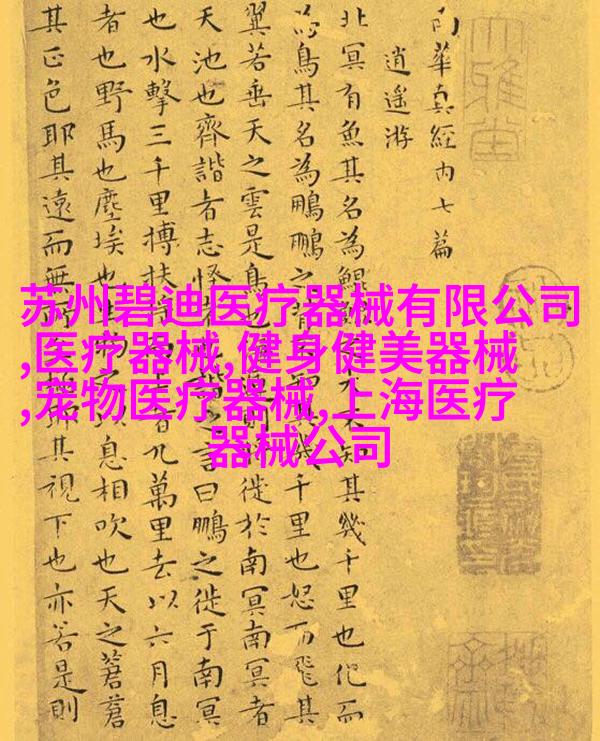 南華真經内七篇
逍遥游
北冥有魚其名為鯤大不知其幾千里也化而
為鳥其名為鵬鵬之背其幾千里也怒而飛其
翼若垂天之雲是鳥也則徙於南冥南冥者
天池也齊諧者志怪者諧之言曰鵬之徙于南冥
也水擊三千里搏扶者九萬里去以六月息
者也野馬也塵埃也生物之以息相吹也天之蒼蒼
其正色耶其遠而無所極耶其視下也亦若是則
苏州碧迪医疗器械有限公司
,医疗器械,健身健美器械
,宠物医疗器械,上海医疗
器械公司